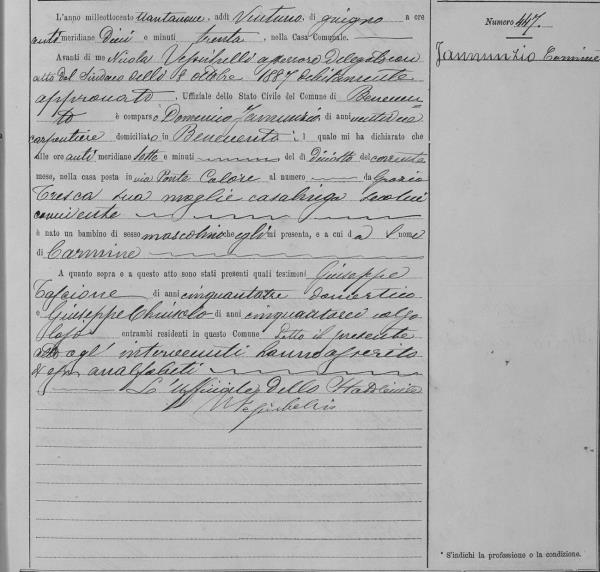 L'anno milleottocento ttantanove, addì Ventuno di giugno a ore
anti meridiane Dieci e minuti trenta, nella Casa Comunale.
Avanti di me Nicola assessore Delegato con
atto del Sindaco delli 8 ottobre 1887 debitamente
approvato Uffiziale dello Stato Civile del Comune di Beneven
to è comparso Domenico Jannunzio, di anni
carpentiere domiciliato in Benevento il quale mi ha dichiarato che
alle ore anti meridiane sette e minuti del dì Diciotto del corrente
mese, nella casa posta in via Ponte Calore al numero da Grazia
Fresca sua moglie casalinga seco lui
convivente
è nato un bambino di sesso mascolino che egli mi presenta, e a cui dà il nome
di Carmine
A quanto sopra e a questo atto sono stati presenti quali testimoni Giuseppe
di anni cinquantatre domestico
e Giuseppe di anni calzo
lajo entrambi residenti in questo Comune Letto il presente
atto agl' intervenuti hanno asserito
di essere analfabeti
L'Uffiziale dello Stato Civile
Numero 447.
Jannunzio Carmine
* S'indichi la professione o la condizione.